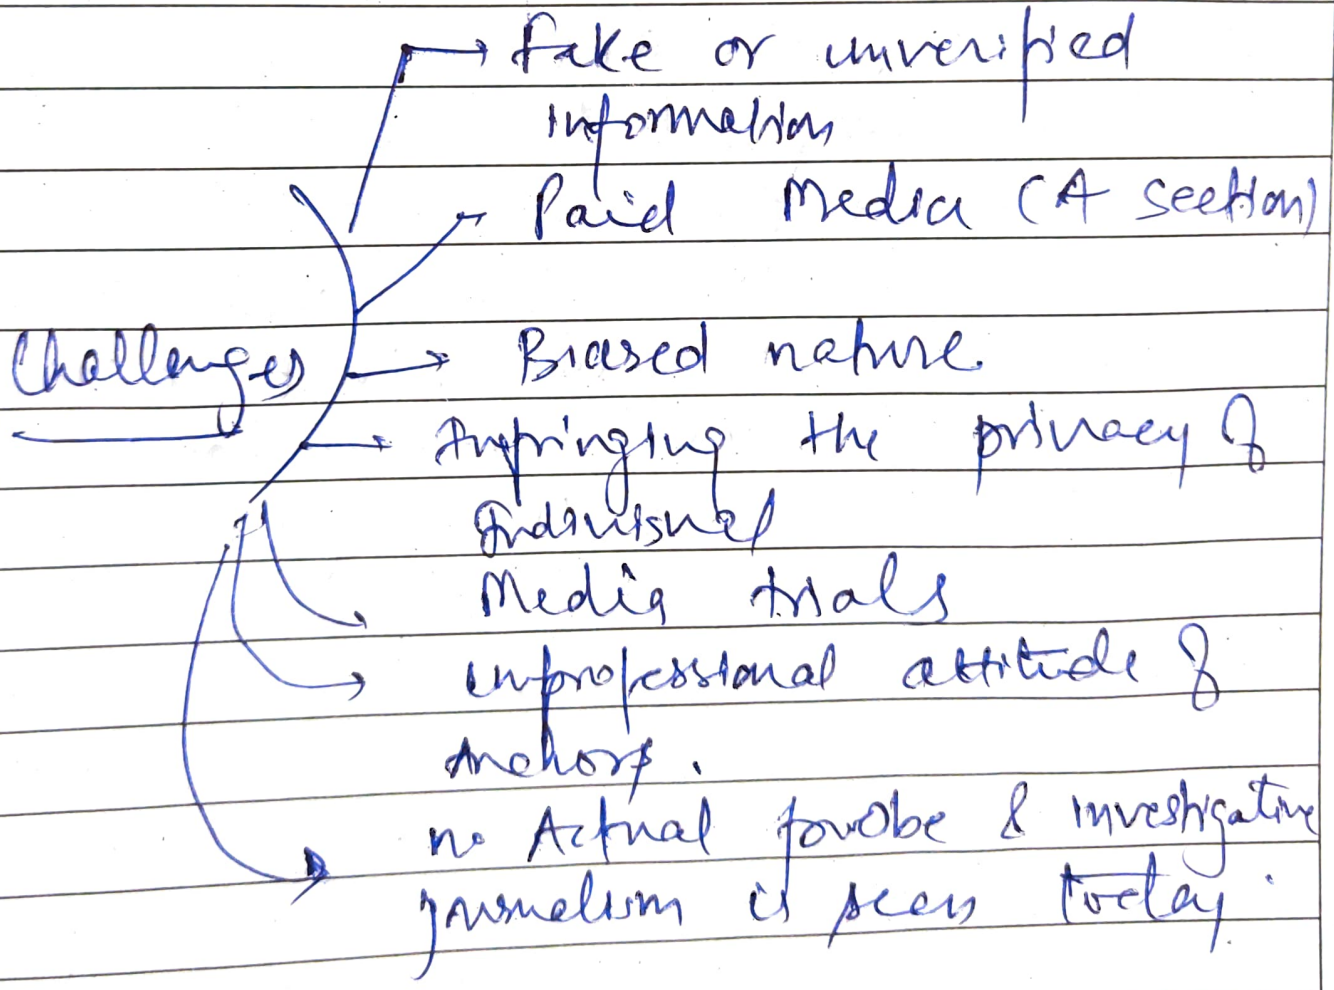 Fake or unverified
Information
Paid Media (A section)
Challenges
Biased nature.
Infringing the privacy of
Individual
Media trials
unprofessional attitude of
Anchors.
no Actual probe & investigative
journalism is seen today.